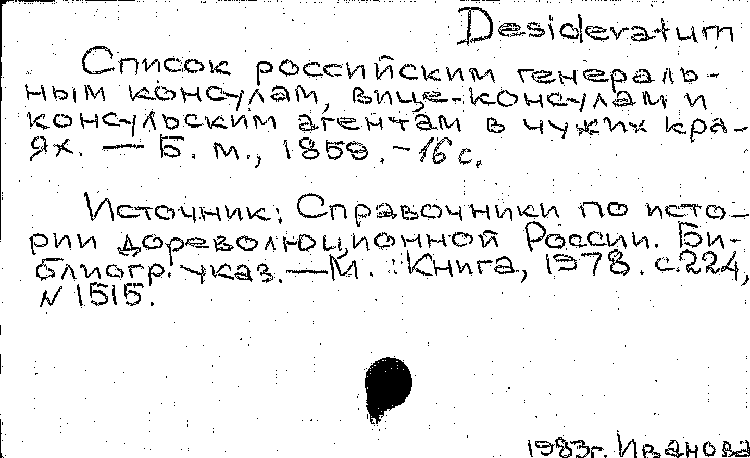 Desideratum
Список российским генераль-
ным консулам, вице-консулам и
консульским агентам в чужих кра-
ях. — Б. м., 1859. - 16 с.
Источник: Справочники по исто-
рии дореволюционной России. Би-
блиогр. указ. — М. : Книга, 1978. с. 224,
N 1515.
1983г. Иванова